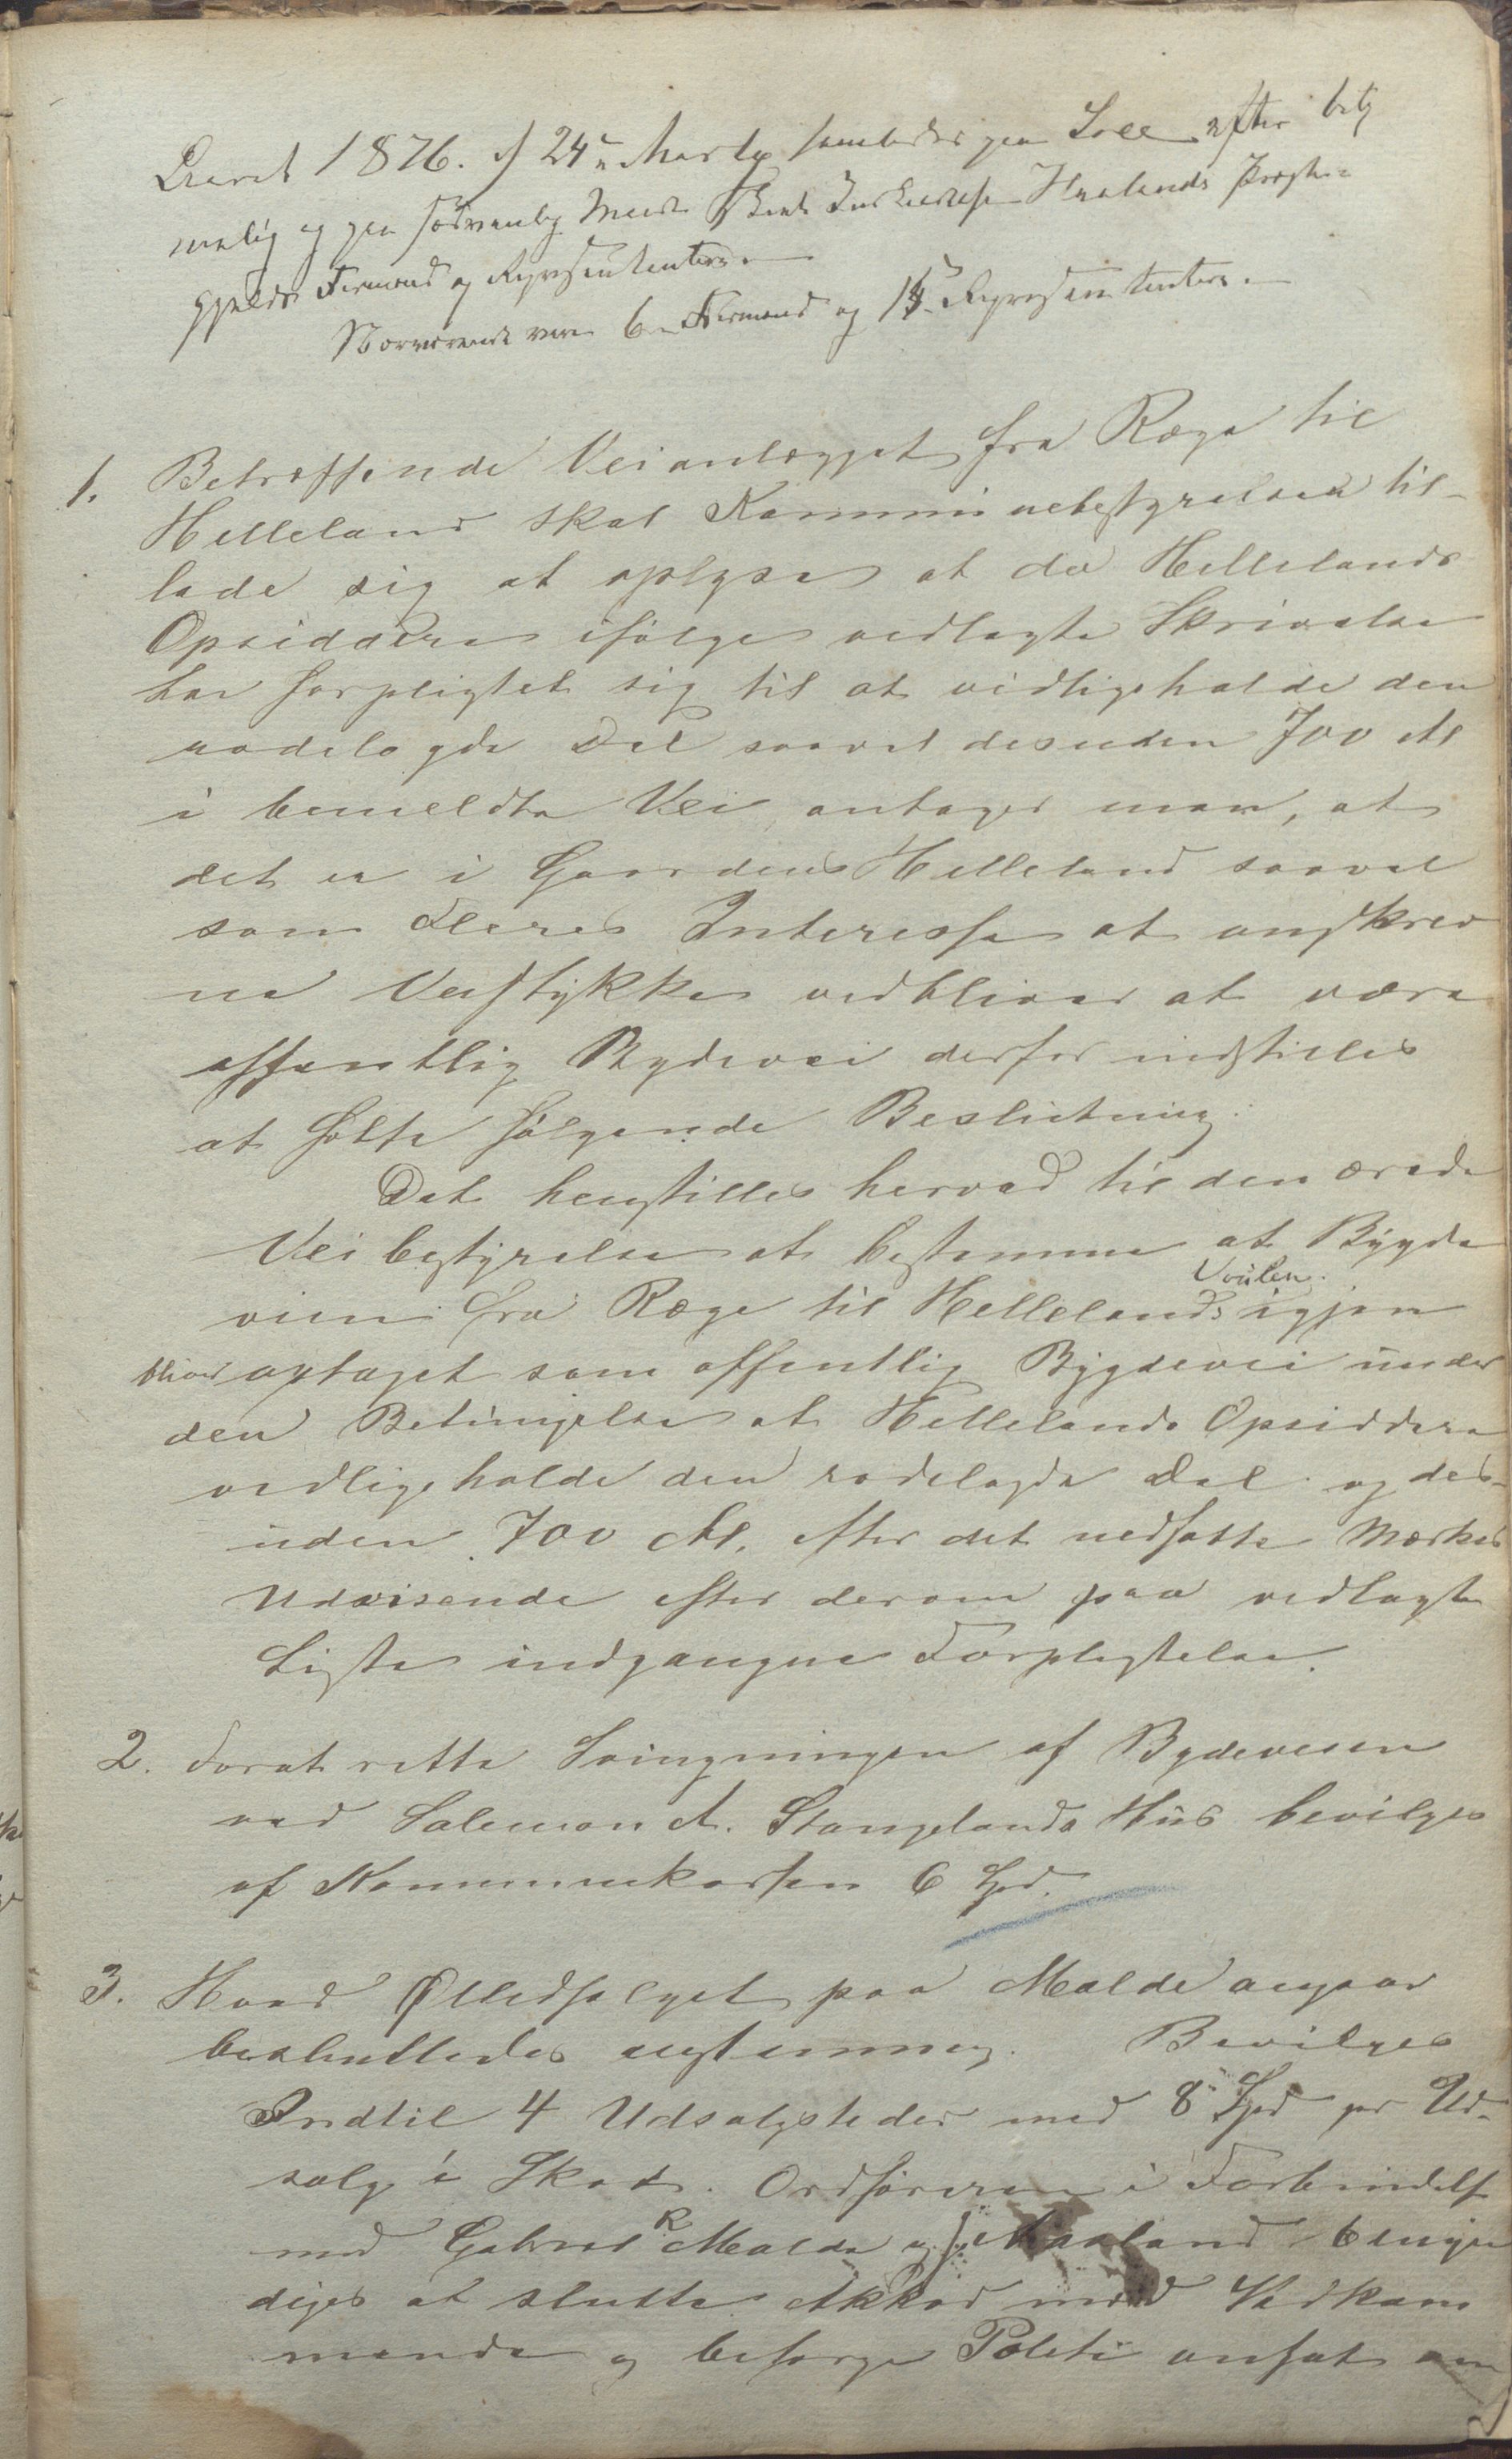 Aaret 1876. d 24de Marts samledes paa Sole efter betj
melig og paa sædvanlig Maade skeet Indkaldelse Haalands Præste-
gjelds Formænd og Repræsentantere.
Nærværende vare 6 Formænd og 15 Repræsentantere.
1. Betræffende Veianlægget fra Ræge til
Helleland skal Kommunebestyrelsen til-
lade sig at oplyse at da Hellelands
Opsiddere ifølge vedlagte Skrivelse
har forpligtet sig til at vedligeholde den
rodelagde Del saavel desuden 700 Al
i bemeldte Vei antager man, at
det er i Gaarden Helleland saavel
som Fleres Interesse at omskrev
ne Veistykke vedbliver at være
offentlig Bygdevei derfor indstilles
at fatte følgende Beslutning:
Det henstilles herved til den ærede
Veibestyrelse at bestemme at Bygde
veien fra Ræge til Hellelands igjen
bliver optaget som offentlig Bygdevei under
den Betingelse at Hellelands Opsiddere
vedligeholde den rodelagde Del og des-
uden 700 Al. efter det nedsatte Mærkes
Udvisende efter derom paa vedlagte
Liste indgangne Forpligtelse.
2. Forat rette Svingningen af Bydeveien
ved Salemon A. Stangelands Hus bevilges
af Kommunekassen 6 Spd.
3. Hvad Ølledsalget paa Malde angaar
besluttedes enstemmig. Bevilges
Indtil 4 Udsalgsteder med 8 Spd pr Ud-
salg i Skat. Ordføreren i Forbindelse
med Gabriel R Malde og Haaland bemyn
diges at slutte Akkod med Vedkom
mende og besørge Politi ansat